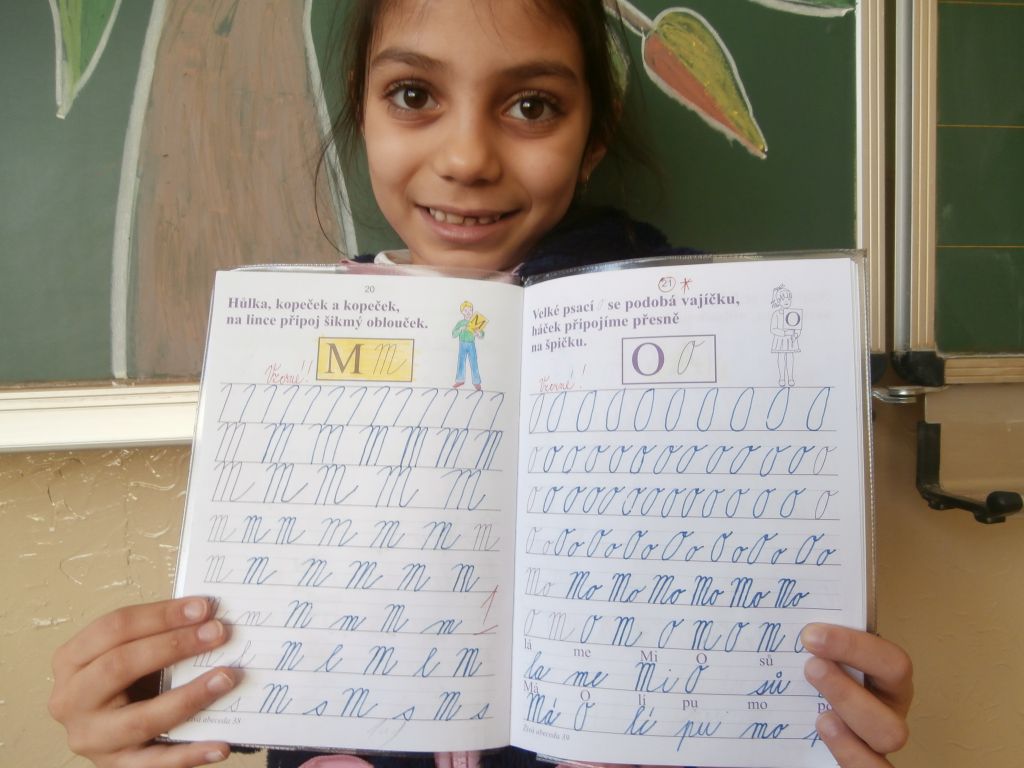 20
Hůlka, kopeček a kopeček,
na lince připoj šikmý oblouček.
M M
M
Vzorné!!
M M M M M M M
M M M M M
M M M M M M M
M M M M M M
m M m M m
1
M l M l M l M
s M s M s M s
Živá abeceda 38
21 *
Velké psací O se podobá vajíčku,
háček připojíme přesně
na špičku.
O O
O
Vzorné!
O O O O O O O O O O O
O O O O O O O O O O O O O
O O O O O O O O O O O O O
O o O o O o O o O o O o O o O o
Mo Mo Mo Mo Mo Mo Mo
O M O M O M O M O
lá me Mi O sů
la me Mi O sů
Má O lí pu mo po
Má O lí pu mo
Živá abeceda 39